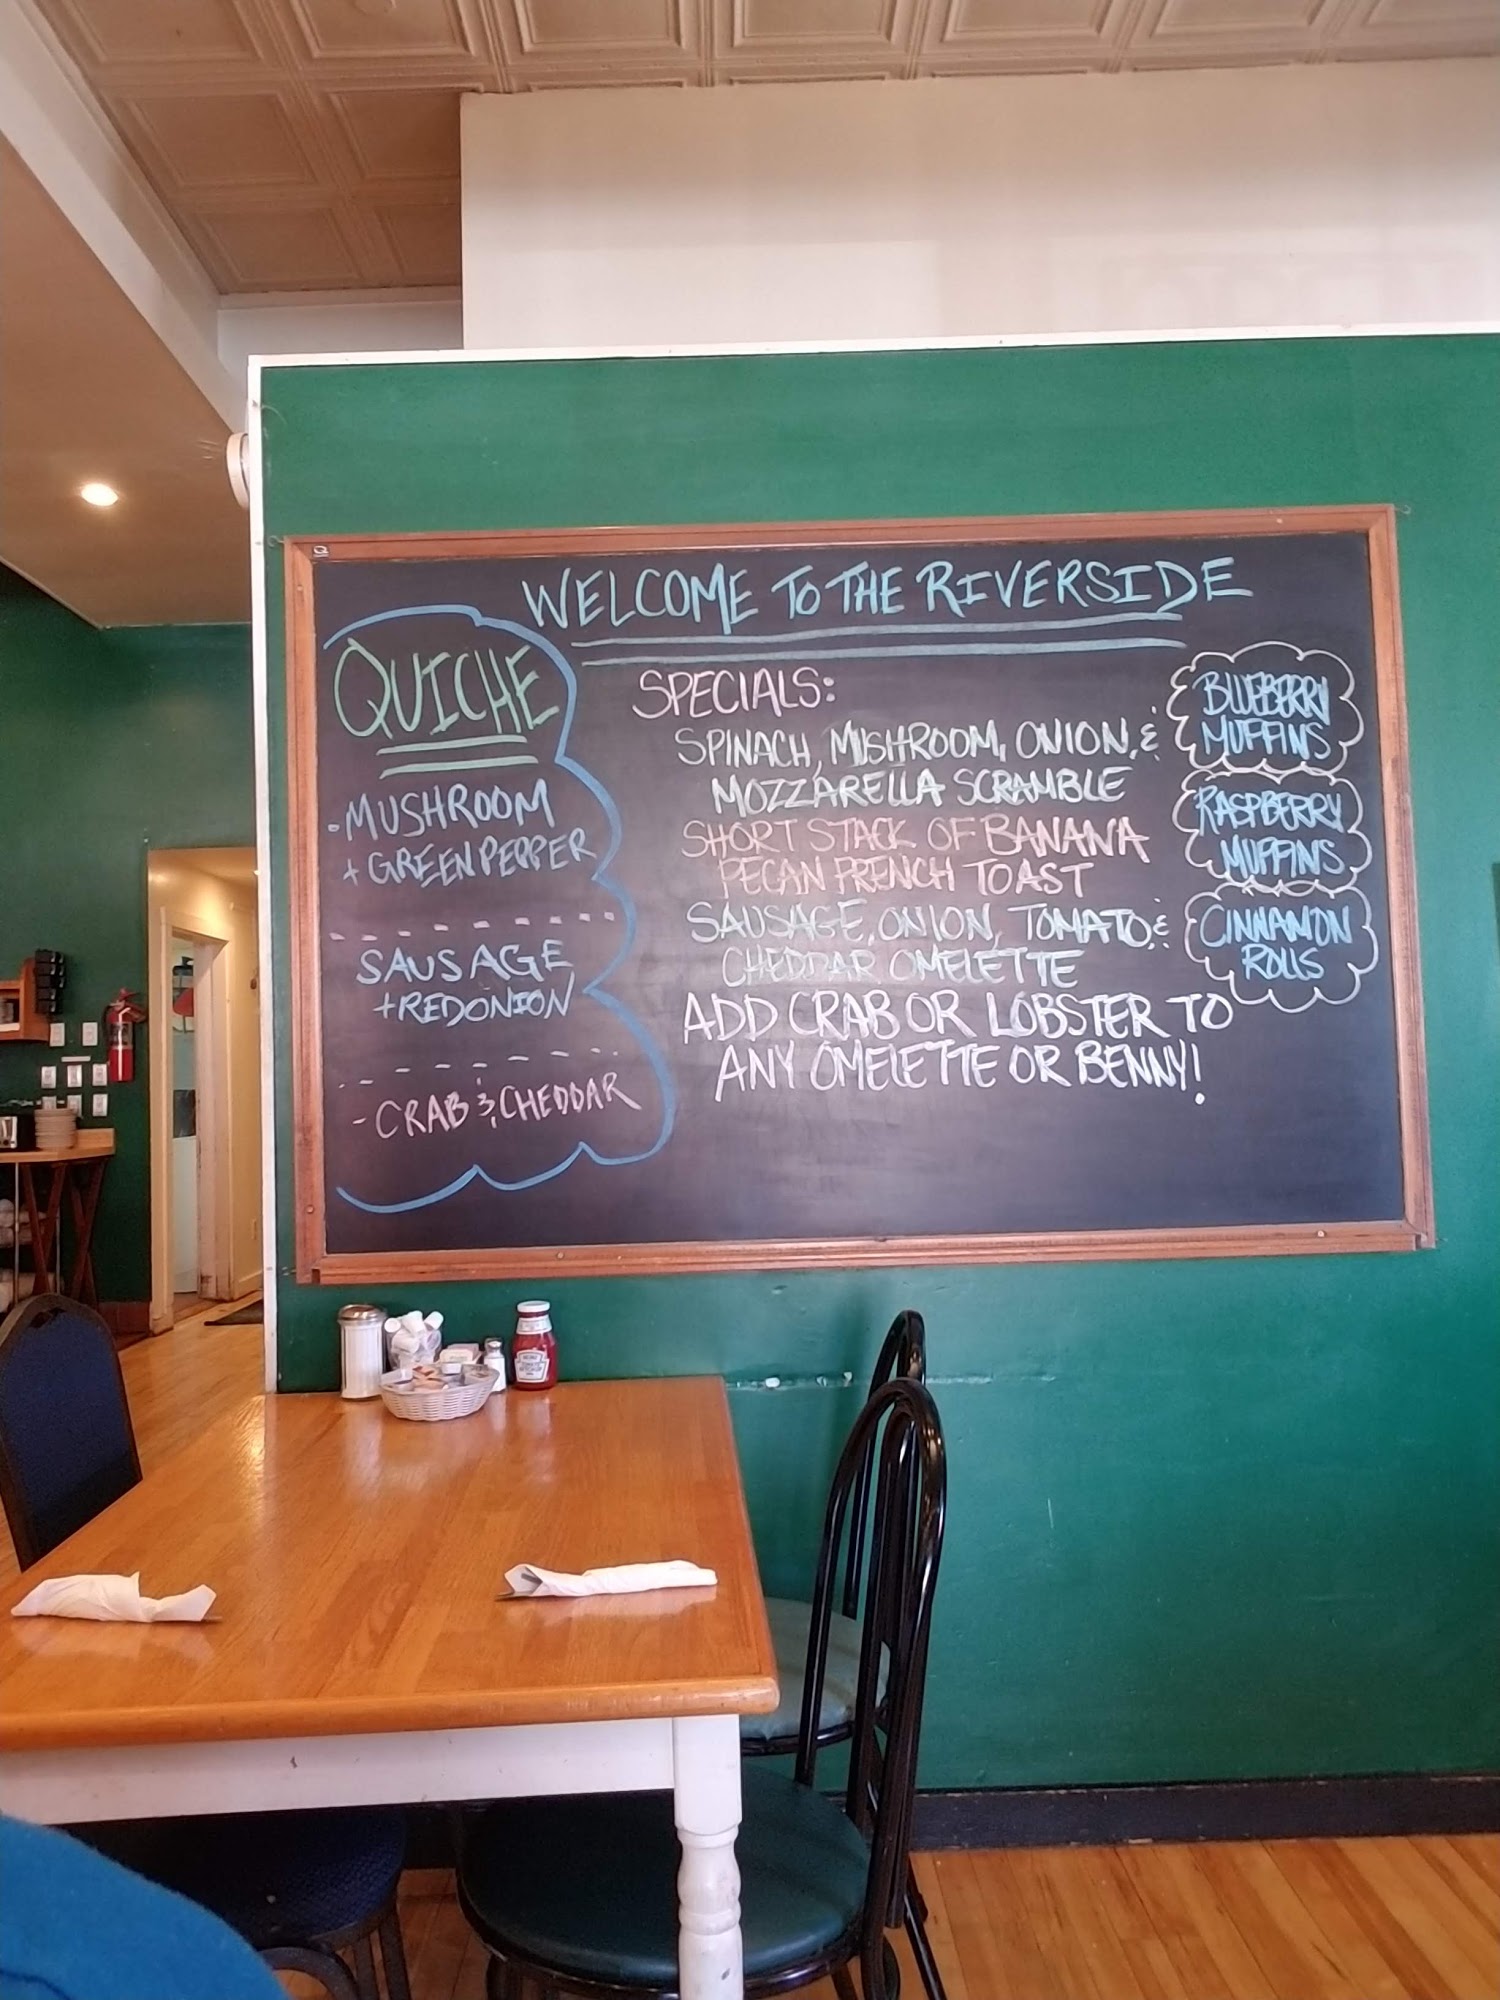 WELCOME TO THE RIVERSIDE
QUICHE
- MUSHROOM
+ GREEN PEPPER
SAUSAGE
+ RED ONION
- CRAB & CHEDDAR
SPECIALS:
SPINACH, MUSHROOM, ONION, &
MOZZARELLA SCRAMBLE
SHORT STACK OF BANANA
PECAN FRENCH TOAST
SAUSAGE, ONION, TOMATO, &
CHEDDAR OMELETTE
ADD CRAB OR LOBSTER TO
ANY OMELETTE OR BENNY!
BLUEBERRY
MUFFINS
RASPBERRY
MUFFINS
CINNAMON
ROLLS
HEINZ